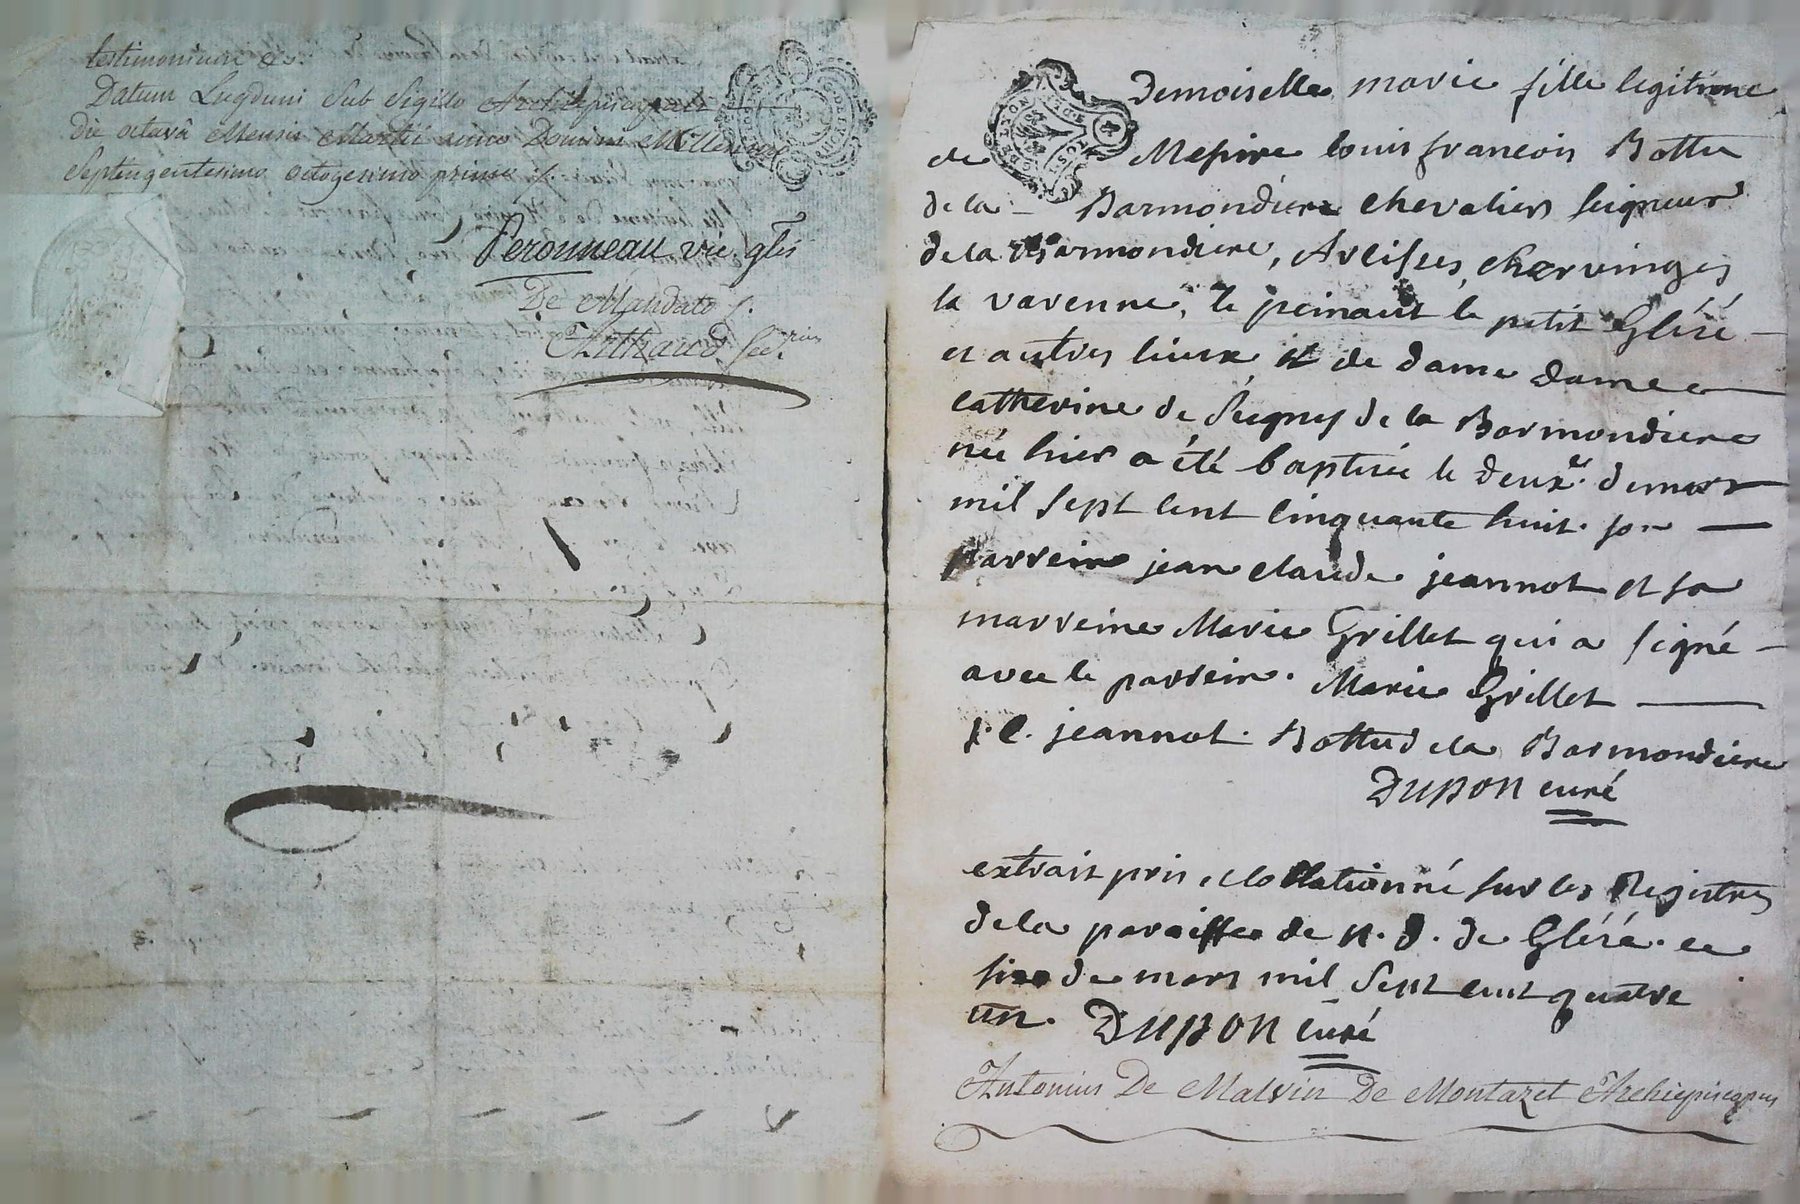 testimonium &c.
Datum Lugduni Sub Sigillo Archiepiscopali
die octavâ Mensis Martii anno Domini Millesimo
Septingentesimo octogesimo primo
Peronneau vic. glis
De Mandato
Arthaud Sec.rius
Demoiselle marie fille legitime
de Messire louis francois Bottu
de la Barmondiere chevalier seigneur
de la Barmondiere, Arcisses, chervinges
la varenne, le peinaut le petit Gléré
et autres lieux et de dame dame
catherine de seigney de la Barmondiere
née hier a été baptisée le deux.e de mars
mil sept cent cinquante huit. son
parrein jean claude jeannot et sa
marreine Marie Grillet qui a signé
avec le parrein. Marie Grillet
j. C. jeannot. Bottu de la Barmondiere
DUPON curé
extrait pris, collationné sur les Registres
de la paroisse de n. d. de Gléré. ce
six de mars mil sept cent quatre
un. DUPON curé
Antonius De Malvin De Montazet Archiepiscopus